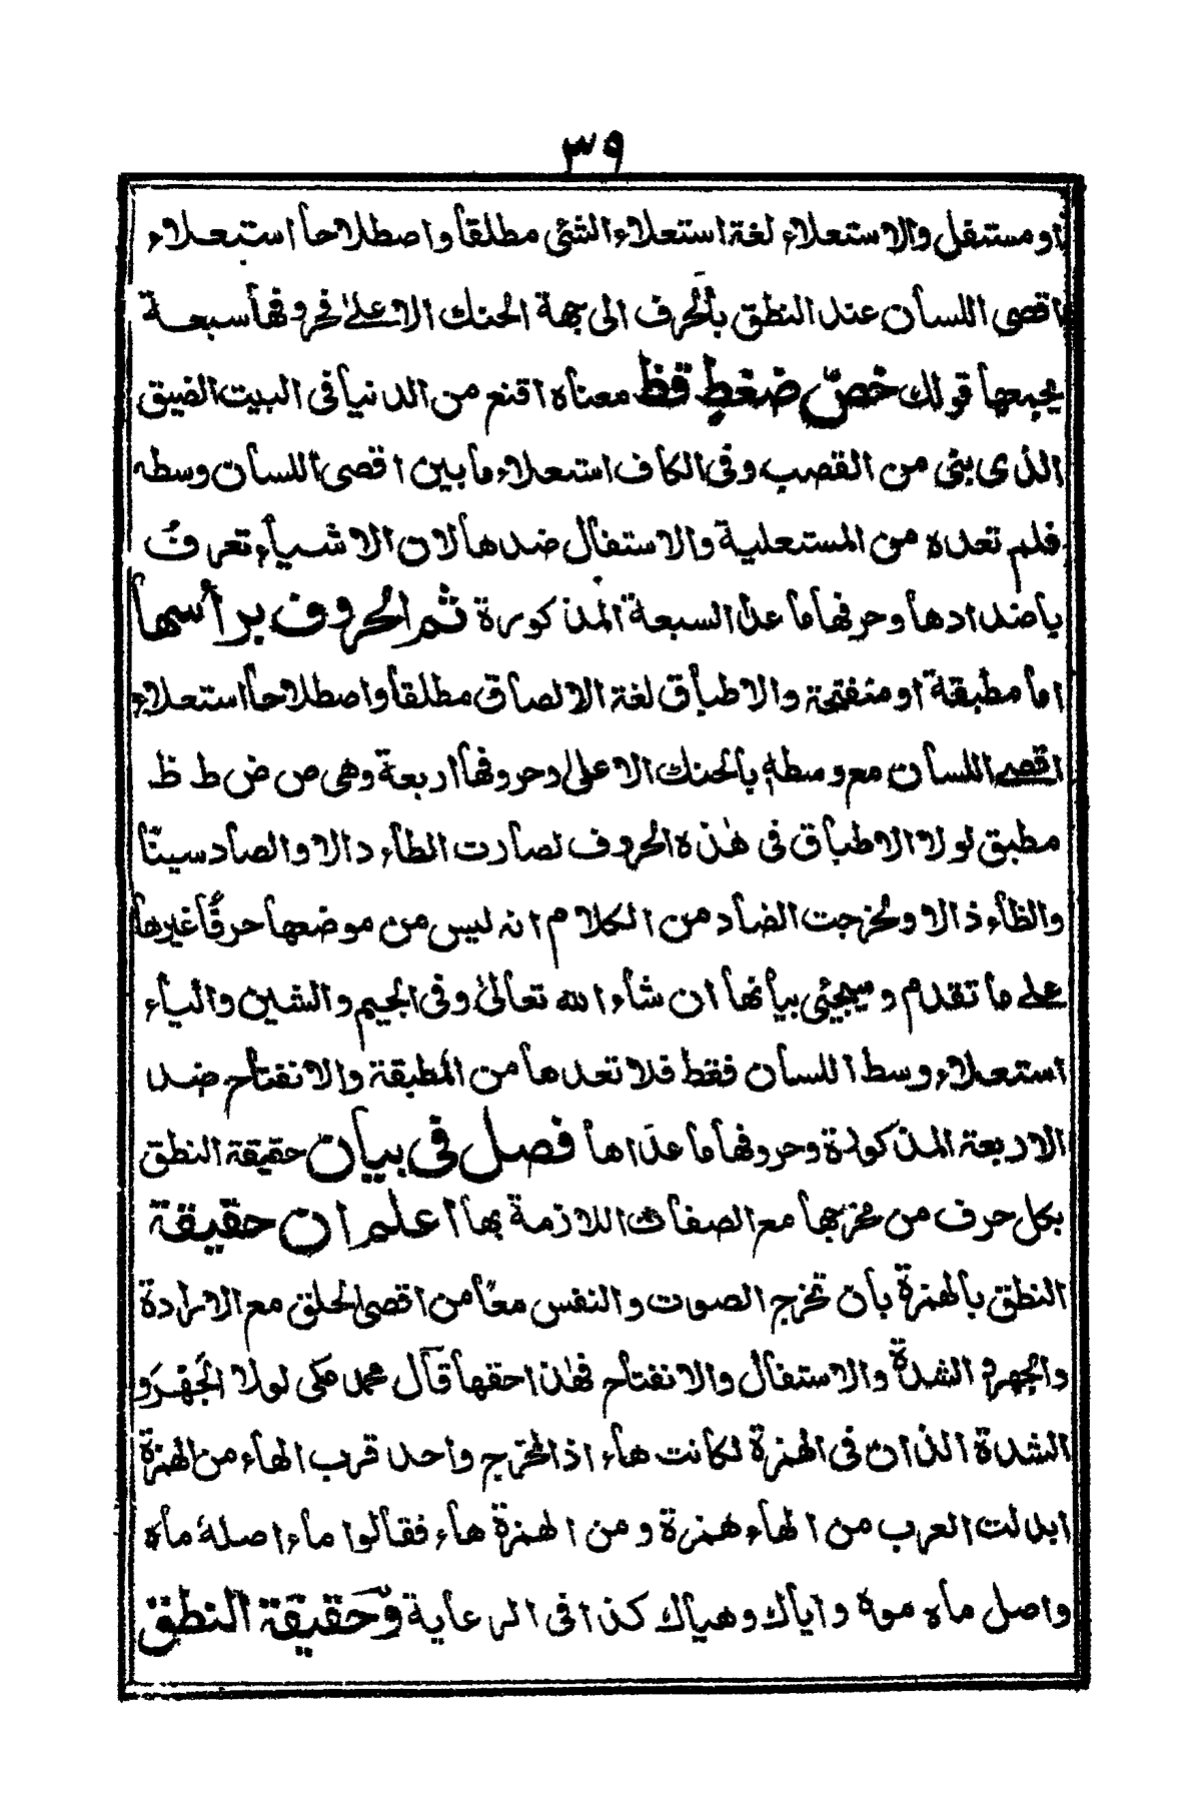 ٣٩
او مستفل والاستعلاء لغة استعلاء الشئی مطلقا واصطلاحا استعلاء
اقصی اللسان عند النطق بالحرف الی جهة الحنك الاعلے فحروفها سبعة
یجمعها قولك خصّ ضغطٍ قظ معناه اقنع من الدنیا فی البیت الضیق
الذی بنی من القصب وفی الکاف استعلاء ما بین اقصی اللسان وسطه
فلم تعده من المستعلیة والاستفال ضدها لان الاشیاء تعرف
باضدادها وحرفها ما عدا السبعة المذکورة ثم الحروف برأسها
اما مطبقة او منفتحة والاطباق لغة الالصاق مطلقا واصطلاحا استعلاء
اقصے اللسان مع وسطه بالحنك الاعلی وحروفها اربعة وهی ص ض ط ظ
مطبق لولا الاطباق فی هٰذه الحروف لصارت الطاء دالا والصاد سینّا
والظاء ذالا ولخرجت الضاد من الکلام انه لیس من موضعها حرفًا غیرها
علے ما تقدم وسیجیئی بیانها ان شاء الله تعالیٰ وفی الجیم والشین والیاء
استعلاء وسط اللسان فقط فلا تعدها من المطبقة والانفتاح ضد
الاربعة المذکورة وحروفها ما عداها فصل فی بیان حقیقة النطق
بکل حرف من مخرجها مع الصفات اللازمة بها اعلم ان حقیقة
النطق بالهمزة بان تخرج الصوت والنفس معًا من اقصی الحلق مع الارادة
والجهرة الشدة والاستفال والانفتاح فهٰذا حقها قال محمد مکی لولا الجَهْرَ و
الشدة الذان فی الهمزة لکانت هاء اذ المخرج واحد قرب الهاء من الهمزة
ابدلت العرب من الهاء همزة ومن الهمزة هاء فقالوا ماء اصله ماه
واصل ماه موه وایاك وهیاك کذا فی الرعایة وحقیقة النطق